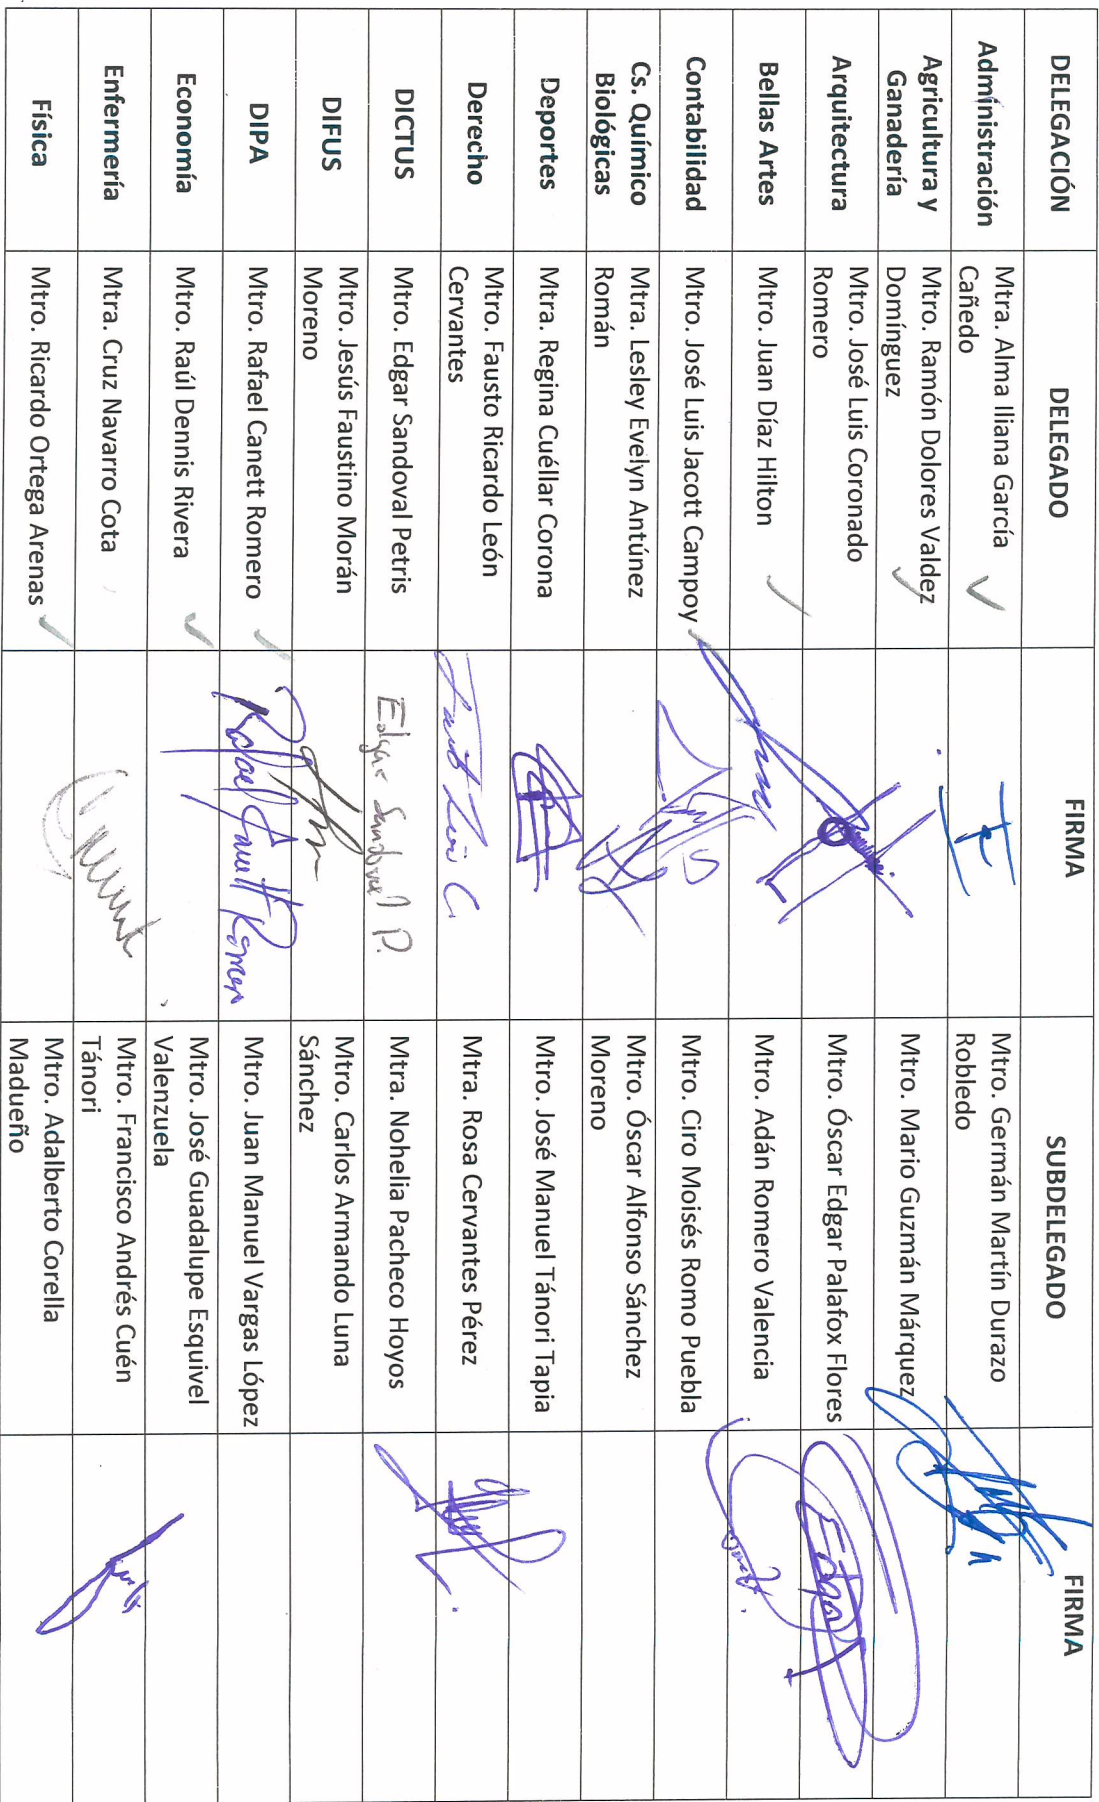 DELEGACIÓN DELEGADO FIRMA SUBDELEGADO FIRMA
Administración
Mtra. Alma Iliana García
Cañedo
Mtro. Germán Martín Durazo
Robledo
Agricultura y
Ganadería
Mtro. Ramón Dolores Valdez
Domínguez
Mtro. Mario Guzmán Márquez
Arquitectura
Mtro. José Luis Coronado
Romero
Mtro. Óscar Edgar Palafox Flores
Edgar
Bellas Artes
Mtro. Juan Díaz Hilton
Mtro. Adán Romero Valencia
Contabilidad
Mtro. José Luis Jacott Campoy
Mtro. Ciro Moisés Romo Puebla
Cs. Químico
Biológicas
Mtra. Lesley Evelyn Antúnez
Román
Mtro. Óscar Alfonso Sánchez
Moreno
Deportes
Mtra. Regina Cuéllar Corona
Mtro. José Manuel Tánori Tapia
Derecho
Mtro. Fausto Ricardo León
Cervantes
Mtra. Rosa Cervantes Pérez
DICTUS
Mtro. Edgar Sandoval Petris
Edgar Sandoval P.
Mtra. Nohelia Pacheco Hoyos
DIFUS
Mtro. Jesús Faustino Morán
Moreno
Mtro. Carlos Armando Luna
Sánchez
DIPA
Mtro. Rafael Canett Romero
Rafael Canett Romero
Mtro. Juan Manuel Vargas López
Economía
Mtro. Raúl Dennis Rivera
Mtro. José Guadalupe Esquivel
Valenzuela
Enfermería
Mtra. Cruz Navarro Cota
Mtro. Francisco Andrés Cuén
Tánori
Física
Mtro. Ricardo Ortega Arenas
Mtro. Adalberto Corella
Madueño